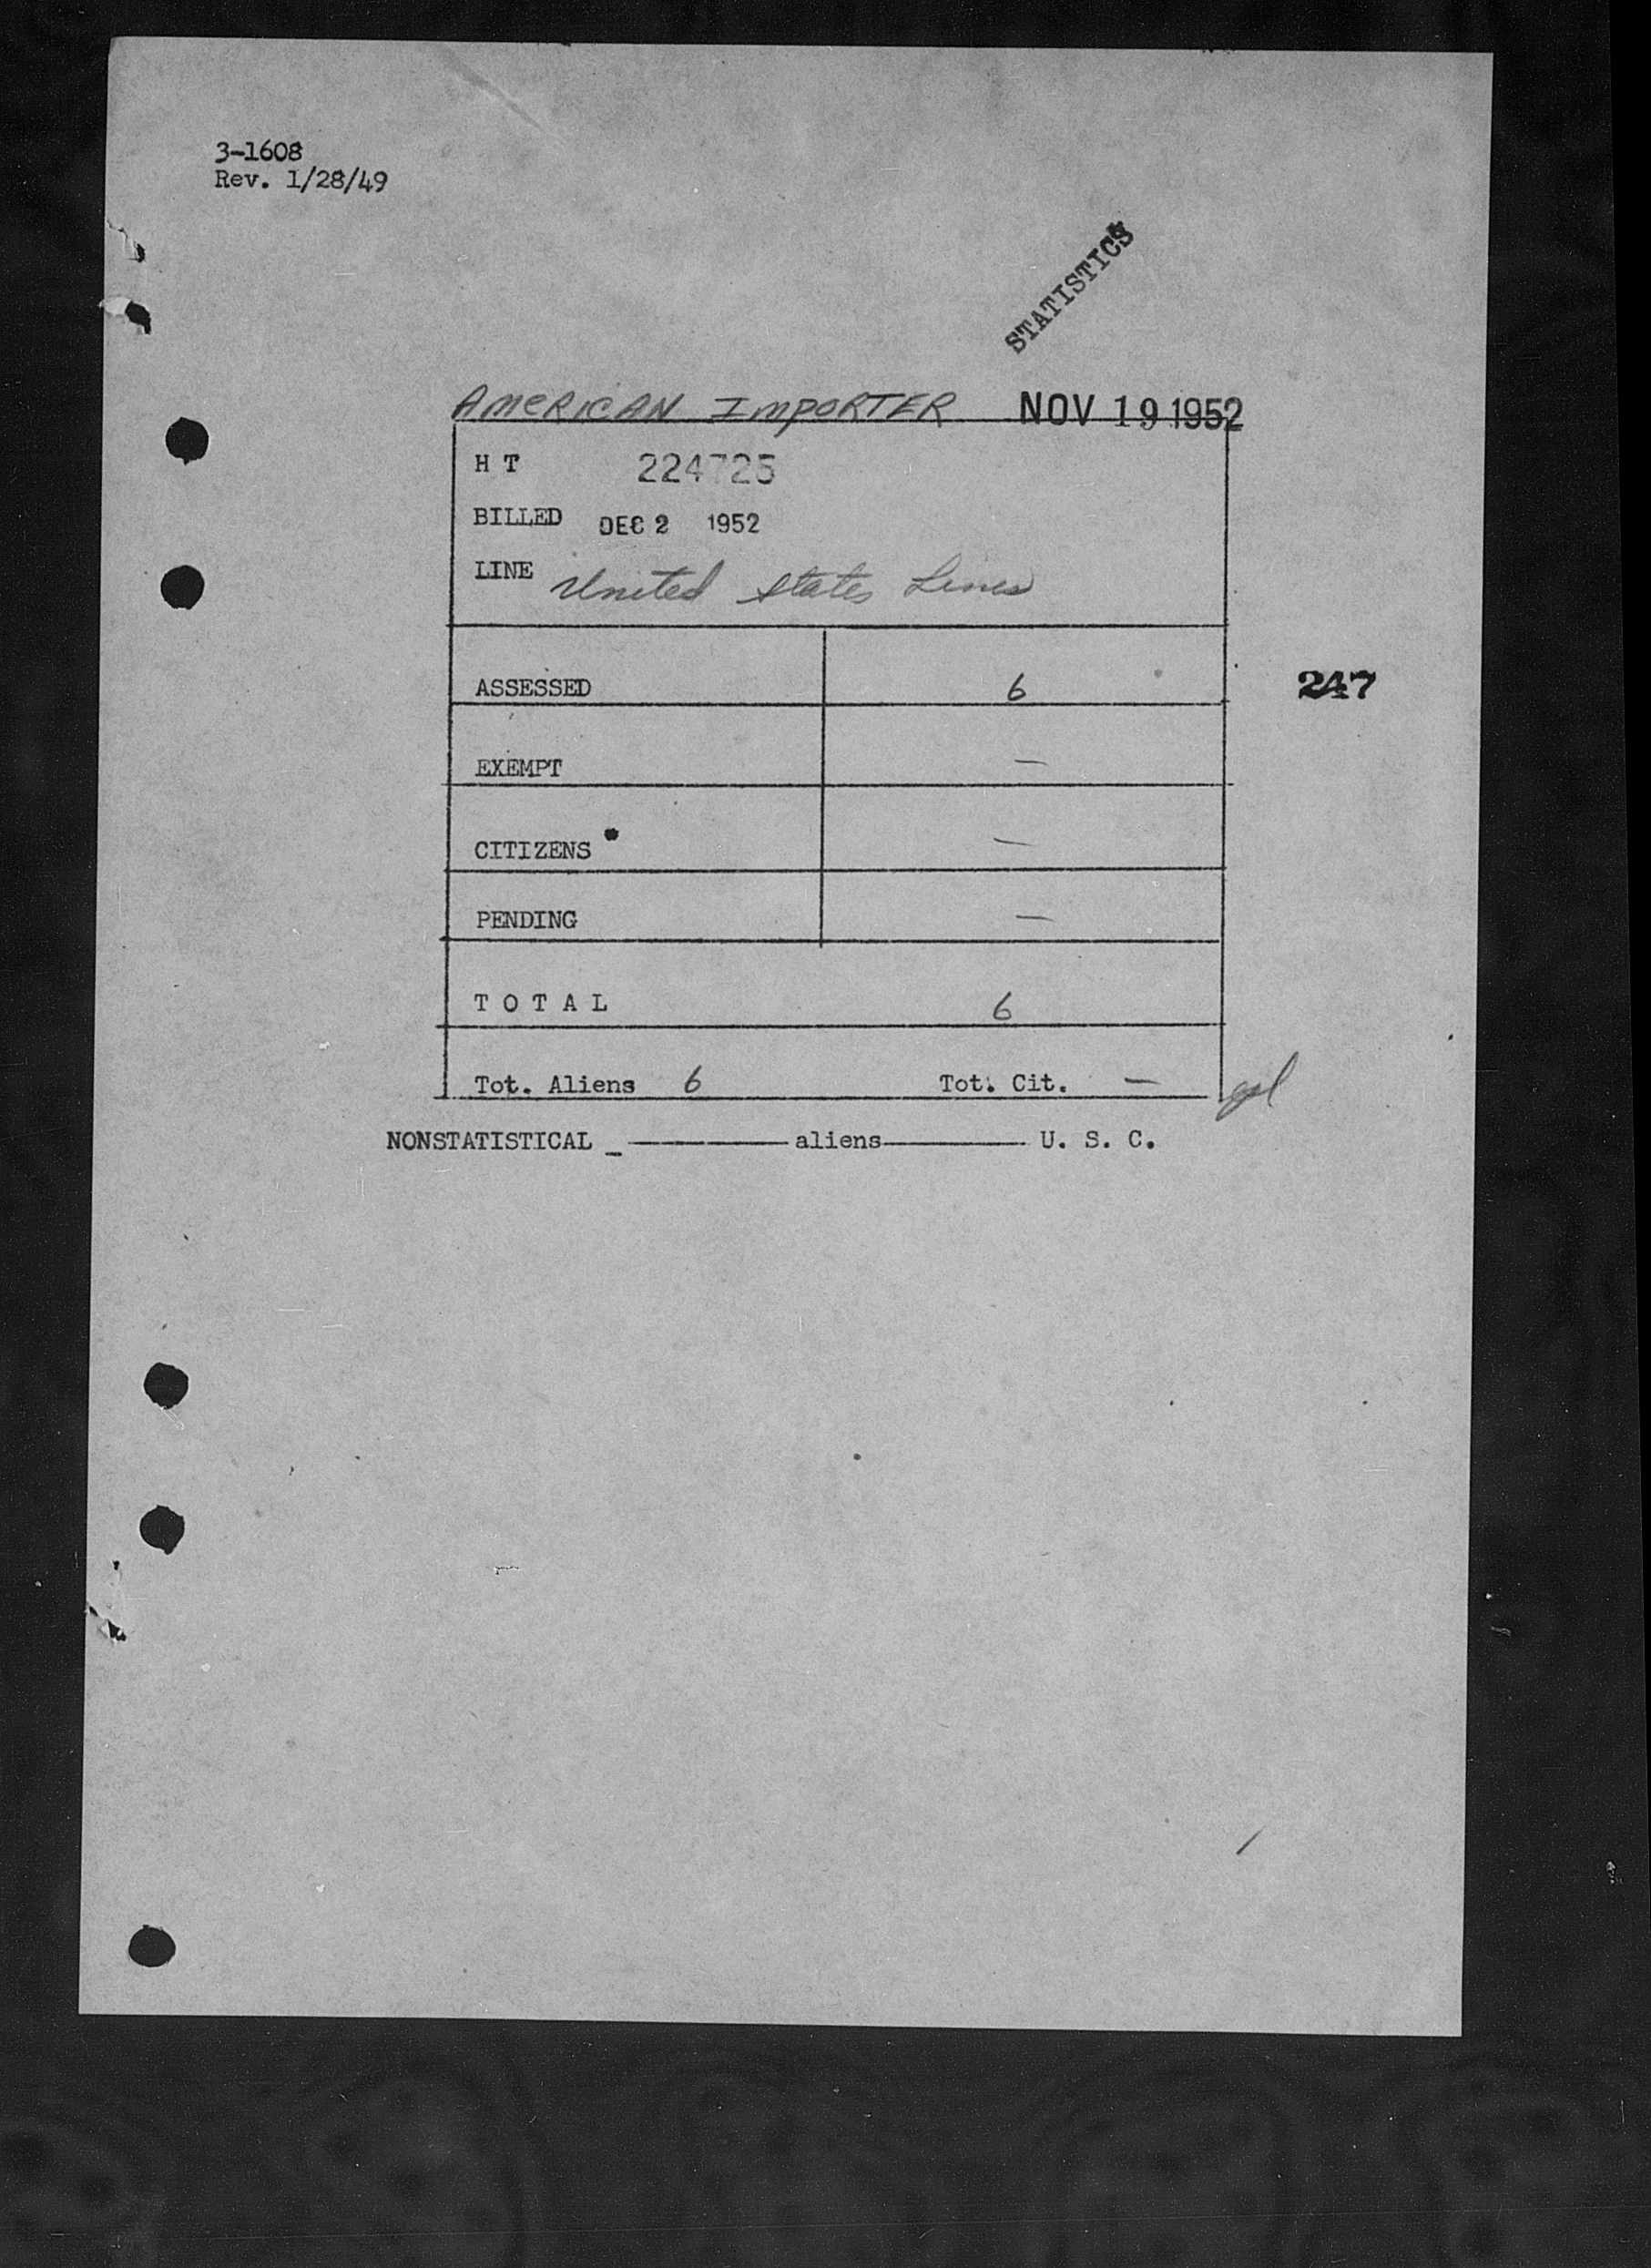 3-1608
Rev. 1/28/49
STATISTICS
AMERICAN IMPORTER NOV 19 1952
H T 224725
BILLED DEC 2 1952
LINE United States Lines
ASSESSED 6
247
EXEMPT —
CITIZENS —
PENDING —
T O T A L 6
Tot. Aliens 6 Tot. Cit. —
NONSTATISTICAL _ ———— aliens ———— U. S. C.